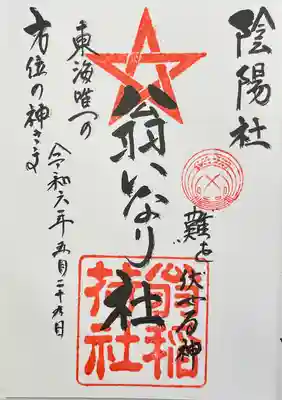 陰陽社
難を伏せる神
翁いなり社
東海唯一の
方位の神さま
令和六年五月二十九日